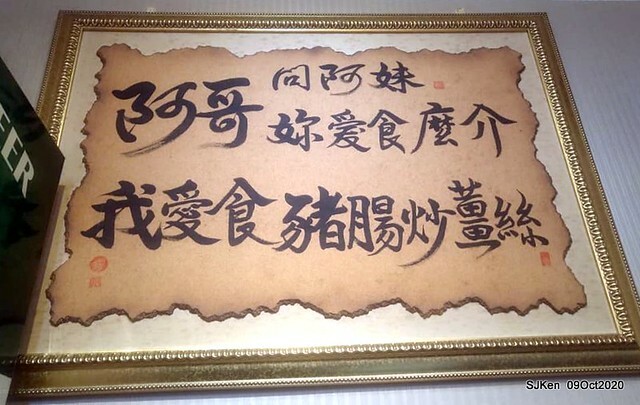 阿哥問阿妹
妳爱食麼介
我愛食豬腸炒薑絲
EER
SJKen 09Oct2020